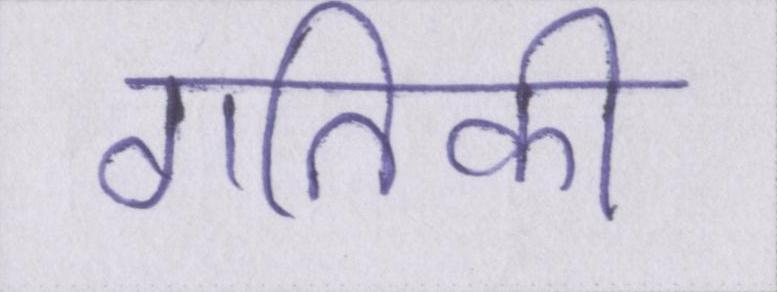 गतिकी